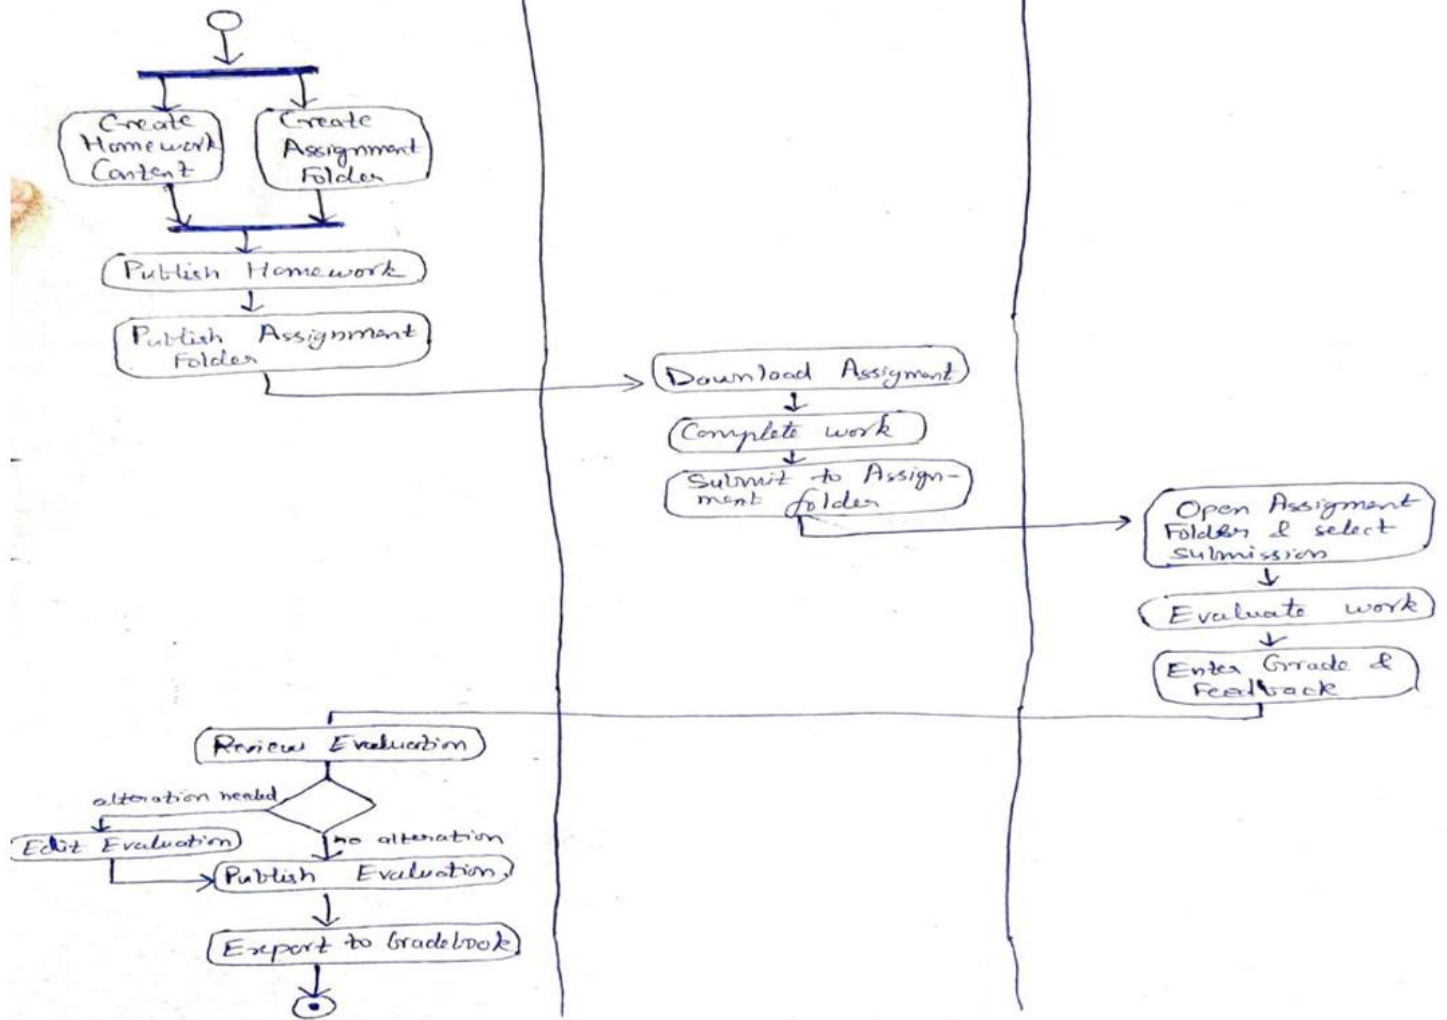 Create
Homework
Content
Create
Assignment
Folder
Publish Homework
Publish Assignment
Folder
Download Assigment
Complete work
Submit to Assign-
ment folder
Open Assigment
Folder & select
submission
Evaluate work
Enter Grade &
Feedback
Review Evaluation
alteration needed
Edit Evaluation
no alteration
Publish Evaluation
Export to Gradebook